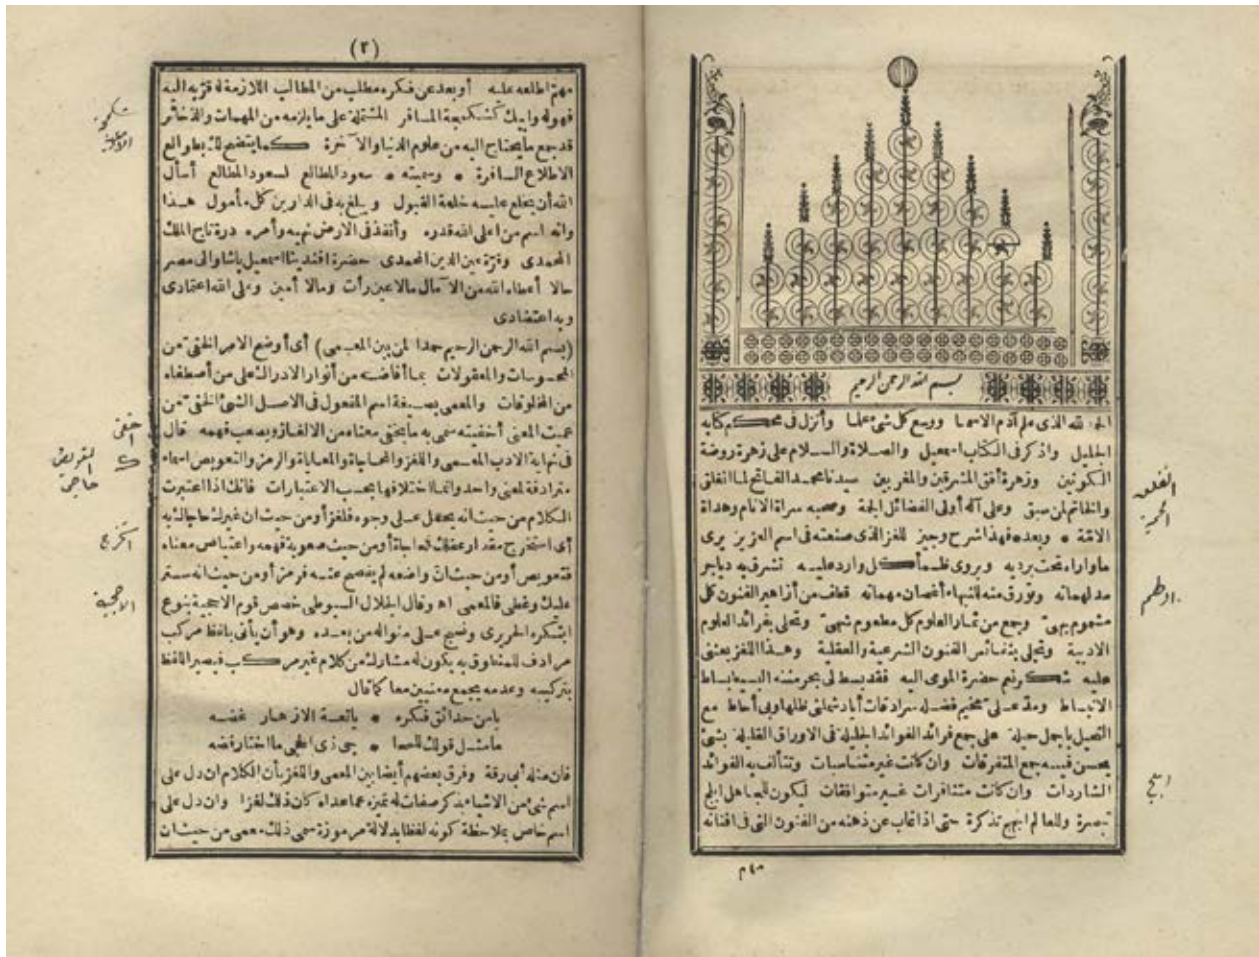 بسم الله الرحمن الرحيم
الحمد لله الذى علم آدم الاسما ووسع كل شئ علما وأنزل فى محكم كتابه
الجليل واذكر فى الكتاب اسمعيل والصلاة والسلام على زهرة روضة
الكونين وزهرة أفق المشرقين والمغربين سيدنا محمد الفاتح لما انغلق
والخاتم لمن سبق وعلى آله أولى الفضائل الجمة وصحبه سراة الانام وهداة
الامّة * وبعد * فهذا شرح وجيز للغز الذى صنعته فى اسم العزيز يرى
ماوراءه تحت برديه ويروى ظمأ كل وارد عليه تشرق به دياجر
مدلهماته وتورق منه للنبهاء أغصان مهماته قطف من أزاهير الفنون كل
مشموم بهىّ وجمع من ثمار العلوم كل مطعوم شهىّ وتحلى بفرائد العلوم
الادبية وتجلى بنفائس الفنون الشرعية والعقلية وهذا اللغز بعض
عليه شكر نعم حضرة المومى اليه فقد بسط لى بحر منته البسيط بساط
الانبساط ومدّ علىّ مخيم فضله سرادقات أياد شملنى ظلها وبى أحاط مع
التحيل باجل حيلة على جمع فرائد الفوائد الجليلة فى الاوراق القليلة بشئ
يحسن فيه جمع المتفرقات وان كانت غير متناسبات وتتألف به الفوائد
الشاردات وان كانت متنافرات غير متوافقات ليكون للجاهل ابلج
تبصرة وللعالم ابهج تذكرة حتى اذا غاب عن ذهنه من الفنون التى فى افنانه
(٢)
مهمّ اطلعه عليه أو بعد عن فكره مطلب من المطالب اللازمة له قرّبه اليه
فهو له وابيك كشكمجة المسافر المشتملة على مايلزمه من المهمات والذخائر
قد جمع مايحتاج اليه من علوم الدنيا والآخرة كما يتضح لك بطوالع
الاطلاع السافرة * وسميته * سعود المطالع لسعود المطالع أسأل
الله أن يخلع عليه خلعة القبول ويبلغ به فى الدارين كل مأمول هذا
وانه اسم من اعلى الله قدره وأنفذ فى الارض نهيه وأمره درة تاج الملك
المحمدى وقرّة عين الدين المحمدى حضرة افندينا اسمعيل باشا والى مصر
حالا أعطاه الله من الآمال مالا عين رأت ومالا أمين وعلى الله اعتمادى
وبه اعتضادى
(بسم الله الرحمن الرحيم حمدا لمن بين المعمى) أى أوضح الامر الخفىّ من
المحسوسات والمعقولات بما أفاضه من أنوار الادراك على من اصطفاه
من المخلوقات والمعمى بصيغة اسم المفعول فى الاصل الشئ الخفىّ من
عميت المعنى أخفيته سمى به مايخفى معناه من الالغاز ويصعب فهمه قال
فى نهاية الادب المعمى واللغز والمحاجاة والمعاياة والرمز والتعويص اسماء
مترادفة لمعنى واحد وانما اختلافها بحسب الاعتبارات فانك اذا اعتبرت
الكلام من حيث انه يحتمل على وجوه فلغز أو من حيث ان غيرك حاجاك به
أى استخرج مقدار عقلك فمحاجاة أو من حيث صعوبة فهمه واعتياص معناه
فتعويص أو من حيث انّ واضعه لم يفصح عنه فرمز أو من حيث انه ستر
عليك وغطى فالمعمى اه وقال الجلال السيوطى خصص قوم الاحجية بنوع
ابتكره الحريرى ونسج على منواله من بعده وهو أن يأتى بلفظ مركب
مرادف للمنطوق به يكون له مشارك من كلام غير مركب فيصير اللفظ
بتركيبه وعدمه يجمع معنيين معا كما قال
يامن حدائق فكره * يانعة الازهار غضه
مامثل قولك للحما * جى ذى الحجى ما اختار فضه
فان مثله أبى رقة وفرق بعضهم أيضا بين المعمى واللغز بأن الكلام ان دل على
اسم شئ من الاشياء بذكر صفات له تميزه عما عداه كان ذلك لغزا وان دل على
اسم خاص بملاحظة كونه لفظا بدلالة مرموزة سمى ذلك معمى من حيث ان
اخفى
استخرج
الاحجية
ابهج